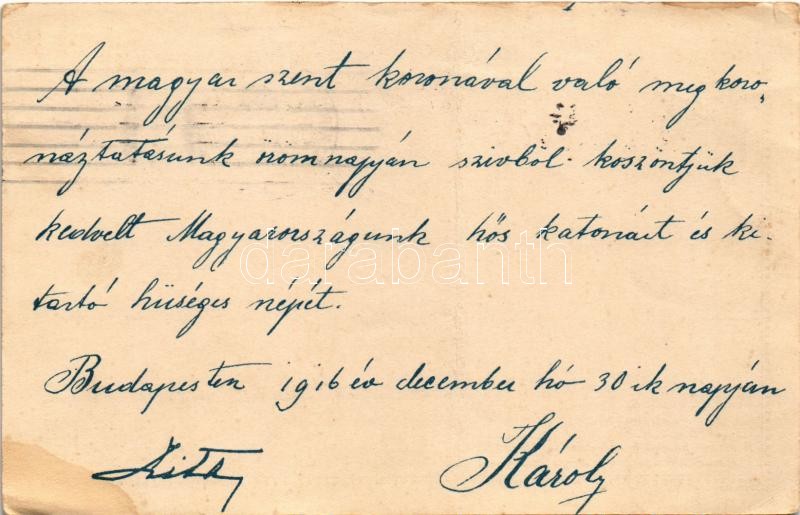 A magyar szent koronával való megkoro„
náztatásunk örömnapján szivből köszöntjük
kedvelt Magyarországunk hős katonáit és ki-
tartó hűséges népét.
Budapesten 1916 év december hó 30 ik napján
Zita Károly
darabanth